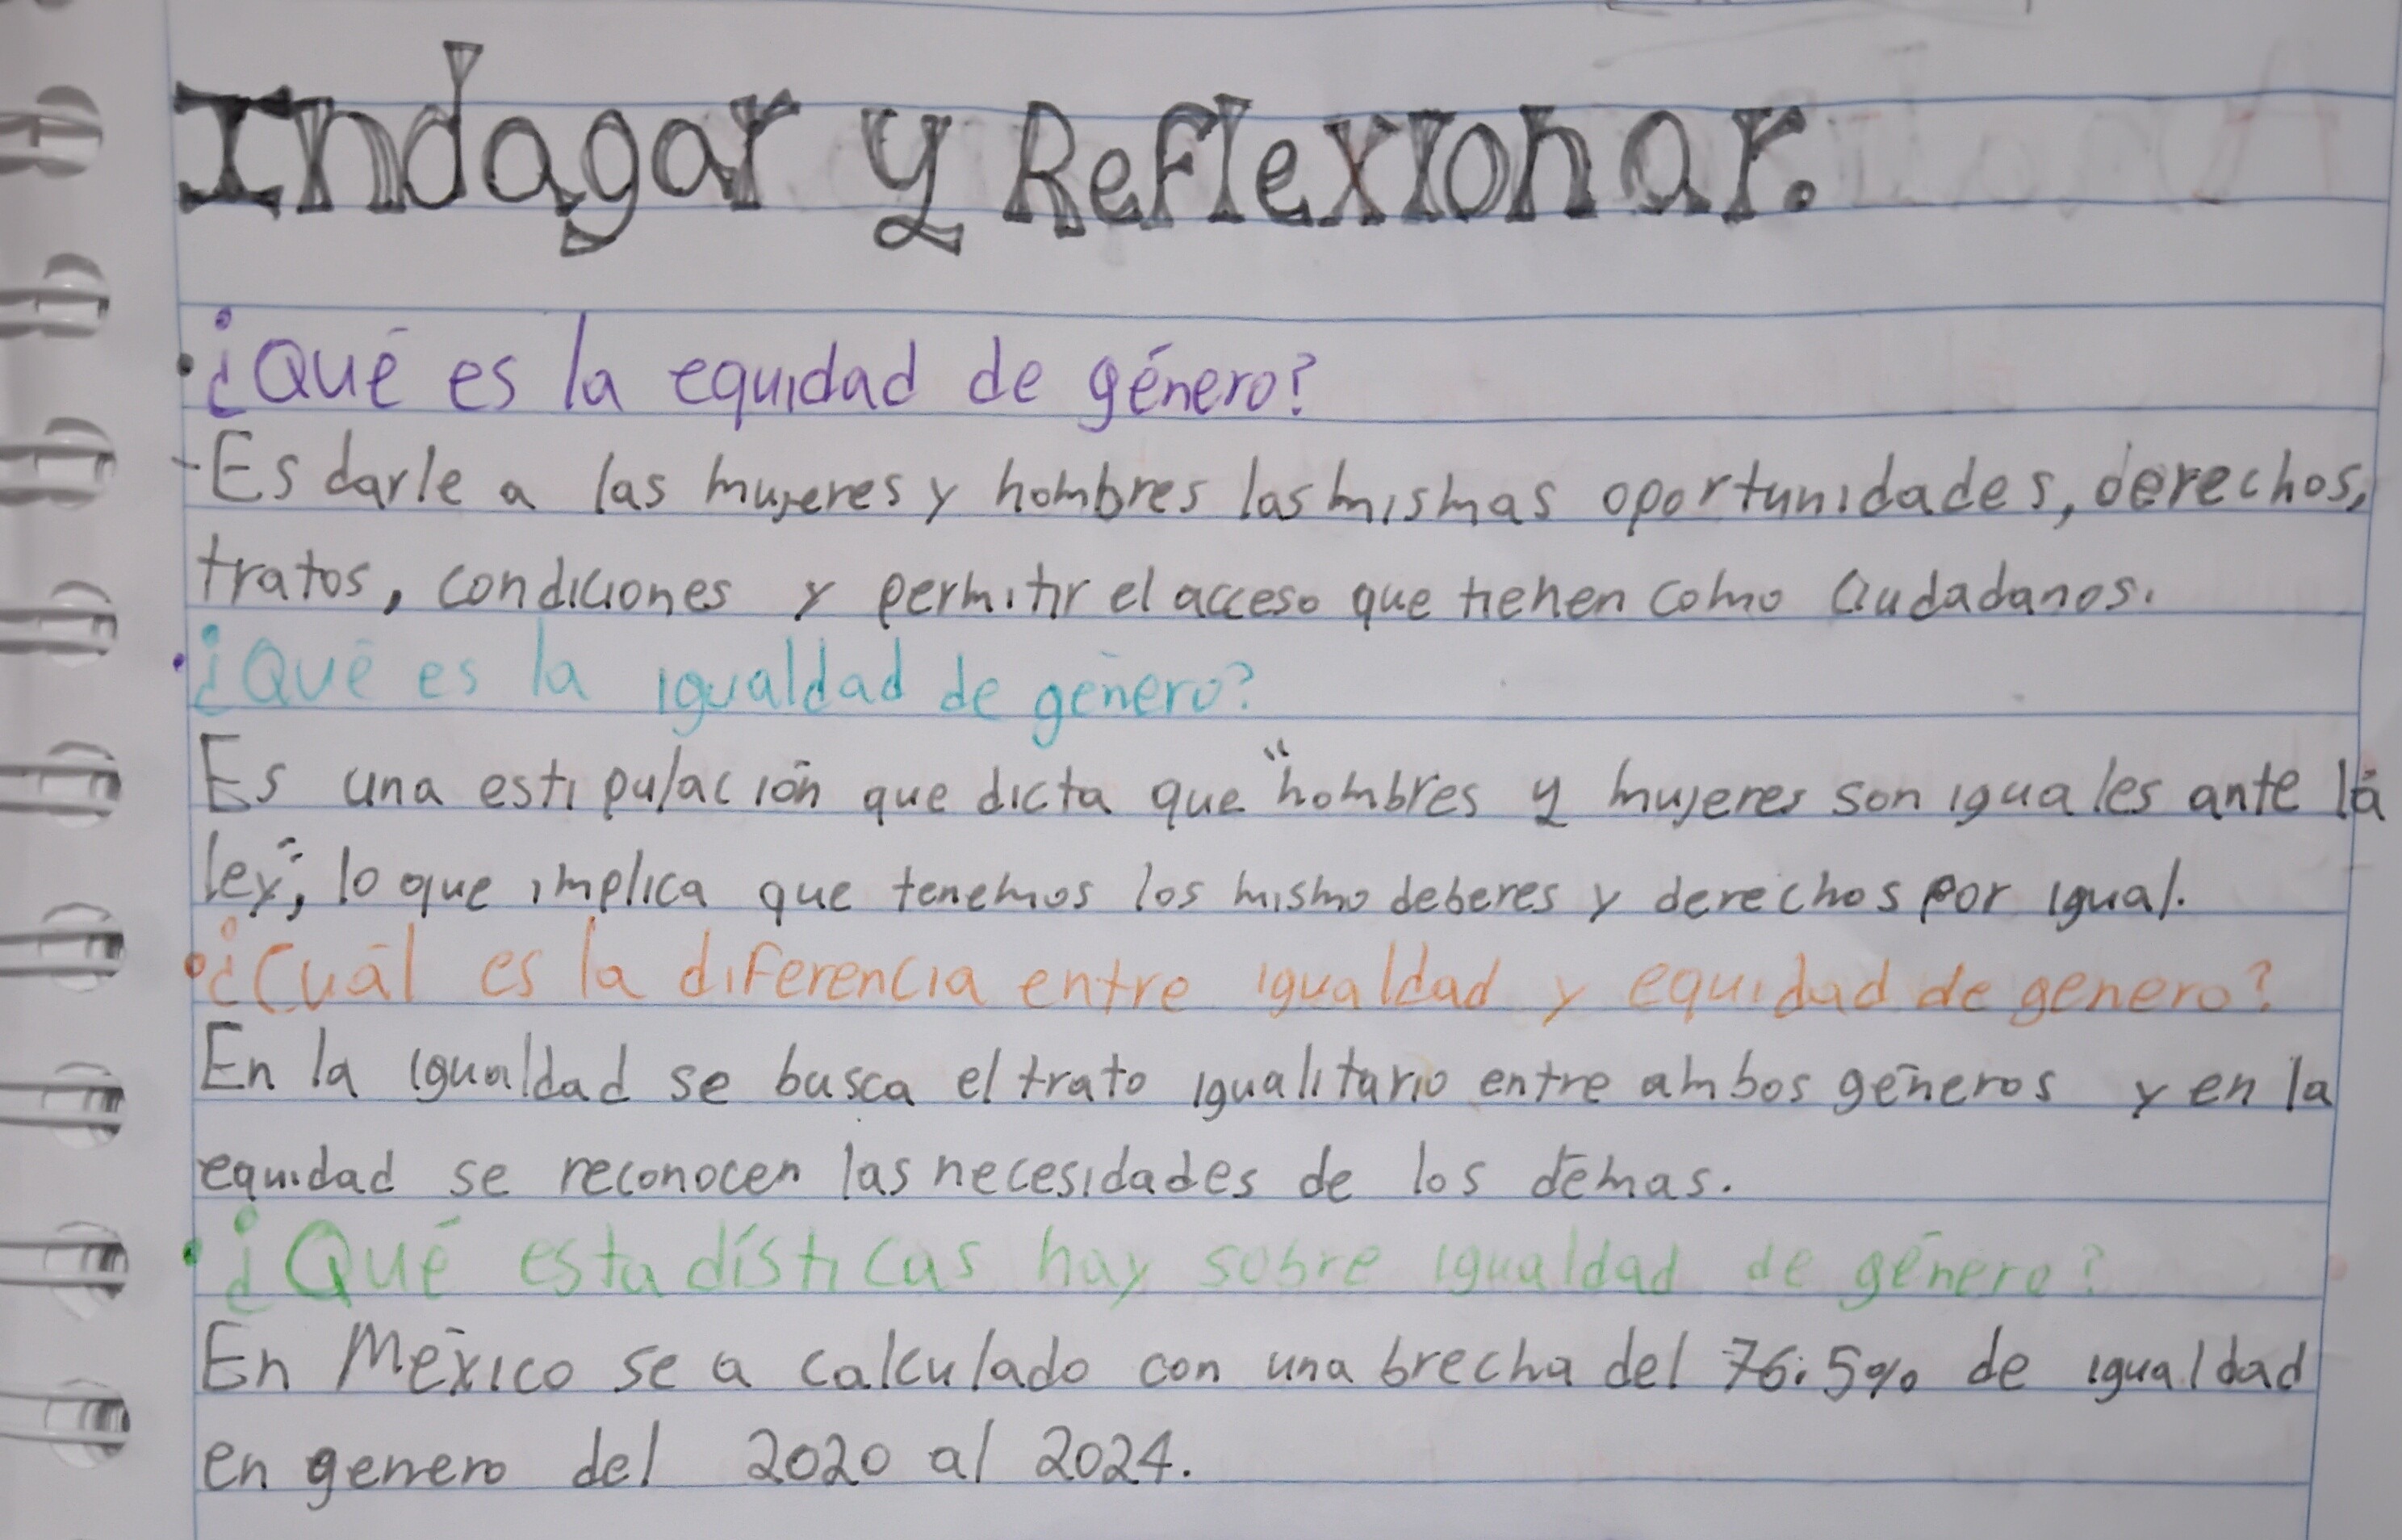 Indagar y Reflexionar.
• ¿Qué es la equidad de género?
- Es darle a las mujeres y hombres las mismas oportunidades, derechos,
tratos, condiciones y permitir el acceso que tienen como ciudadanos.
• ¿Qué es la igualdad de género?
Es una estipulación que dicta que "hombres y mujeres son iguales ante la
ley", lo que implica que tenemos los mismo deberes y derechos por igual.
• ¿Cuál es la diferencia entre igualdad y equidad de genero?
En la igualdad se busca el trato igualitario entre ambos géneros y en la
equidad se reconocen las necesidades de los démas.
• ¿Qué estadísticas hay sobre igualdad de género?
En México se a calculado con una brecha del 76.5% de igualdad
en genero del 2020 al 2024.